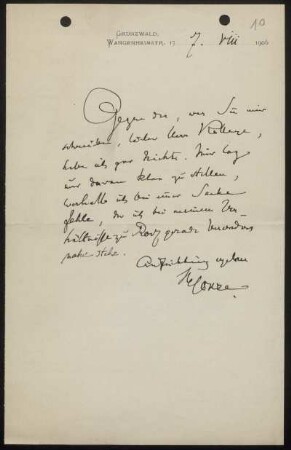 10
GRUNEWALD,
WANGENHEIMSTR. 17 7. VIII 1906
Gegen das, was Sie mir
schreiben, lieber Herr Kollege,
habe ich gar Nichts. Mir lag
nur daran klar zu stellen,
weshalb ich bei einer Sache
fehle, der ich bei meinem Ver-
hältnisse zu gerade besonders
nahe stehe.
ergeben
Conze.